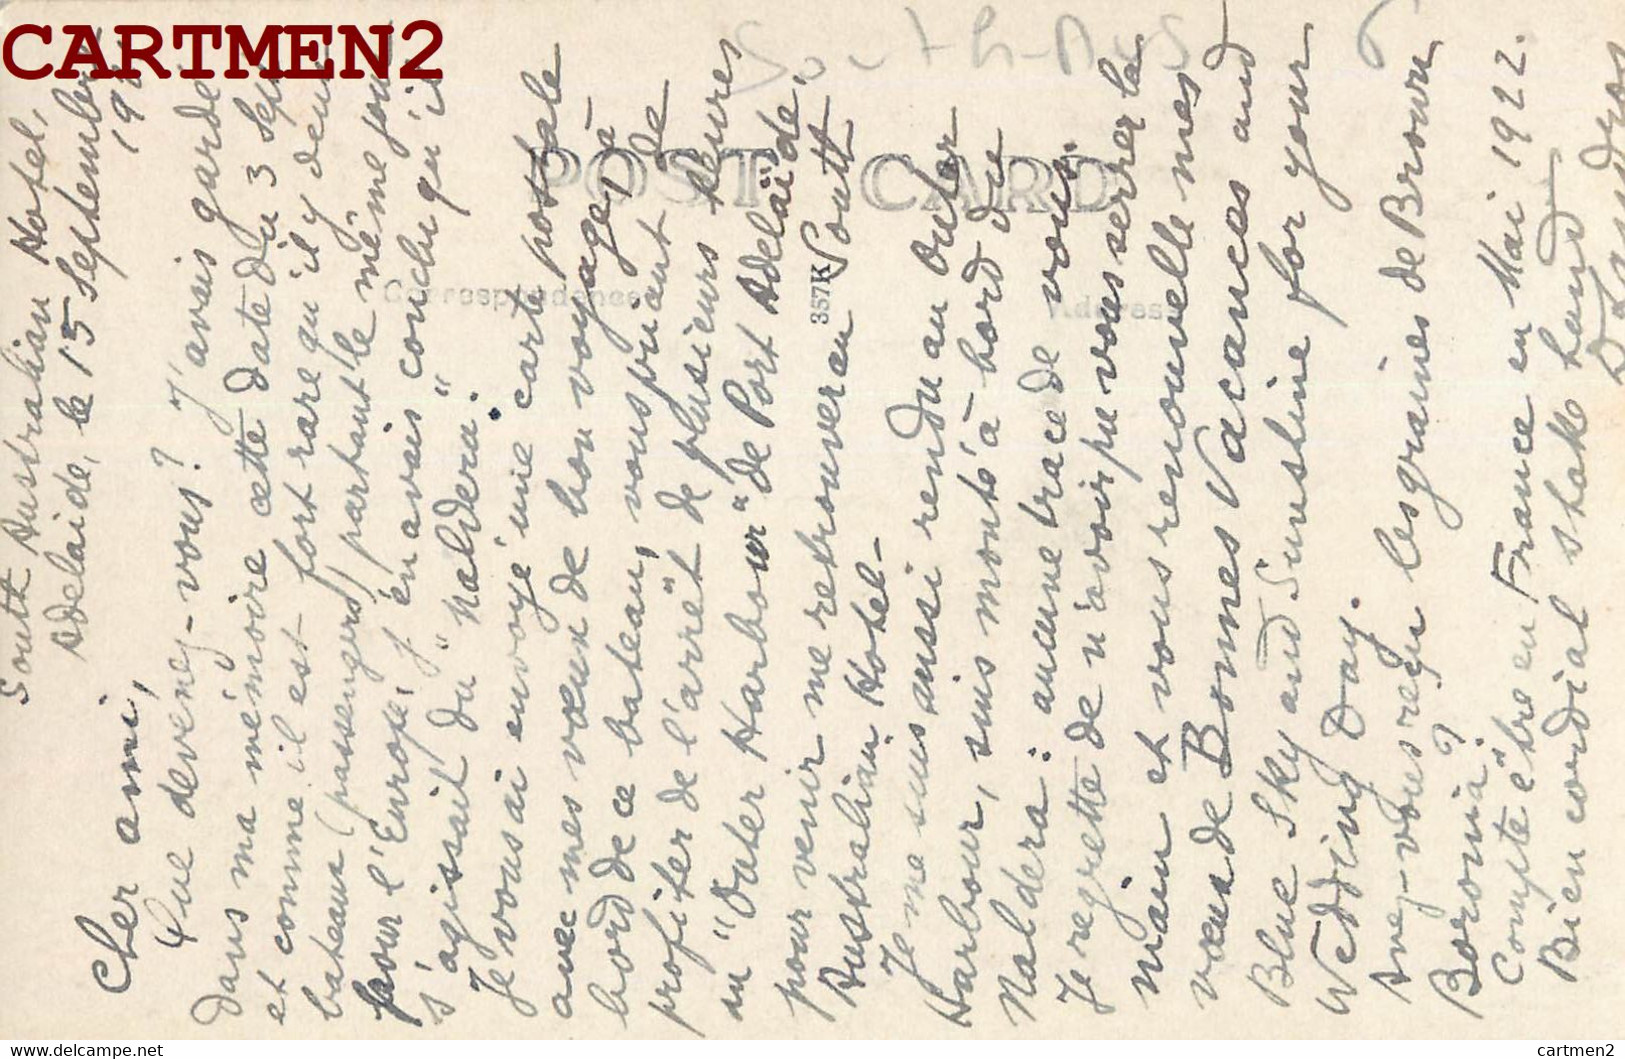 CARTMEN2
South-Aus
POST CARD
Correspondence
Address
357K
South Australian Hotel,
Adelaide, le 15 Septembre
192
Cher ami,
Que devenez-vous? J'avais gardé
dans ma mémoire cette date du 3 Sept
et comme il est fort rare qu'il y deux
bateaux (passengers) partant le même jour
pour l'Europe, j'en avais conclu qu'il
s'agissait du "Naldera".
Je vous ai envoyé une carte postale
avec mes vœux de bon voyage, à
bord de ce bateau, vous priant de
profiter de l'arrêt de plusieurs heures
au "Outer Harbour" de Port Adelaïde,
pour venir me retrouver au South
Australian Hotel-
Je me suis aussi rendu au Outer
Harbour, suis monté à bord du
Naldera: aucune trace de vous.
Je regrette de n'avoir pu vous serrer la
main et vous renouvelle mes
vœux de Bonnes Vacances and
Blue Sky and Sunshine for your
Wedding Day.
Avez-vous reçu les graines de Brown
Boronia?
Compte être en France en Mai 1922.
Bien cordial shake hand
delcampe.net
cartmen2